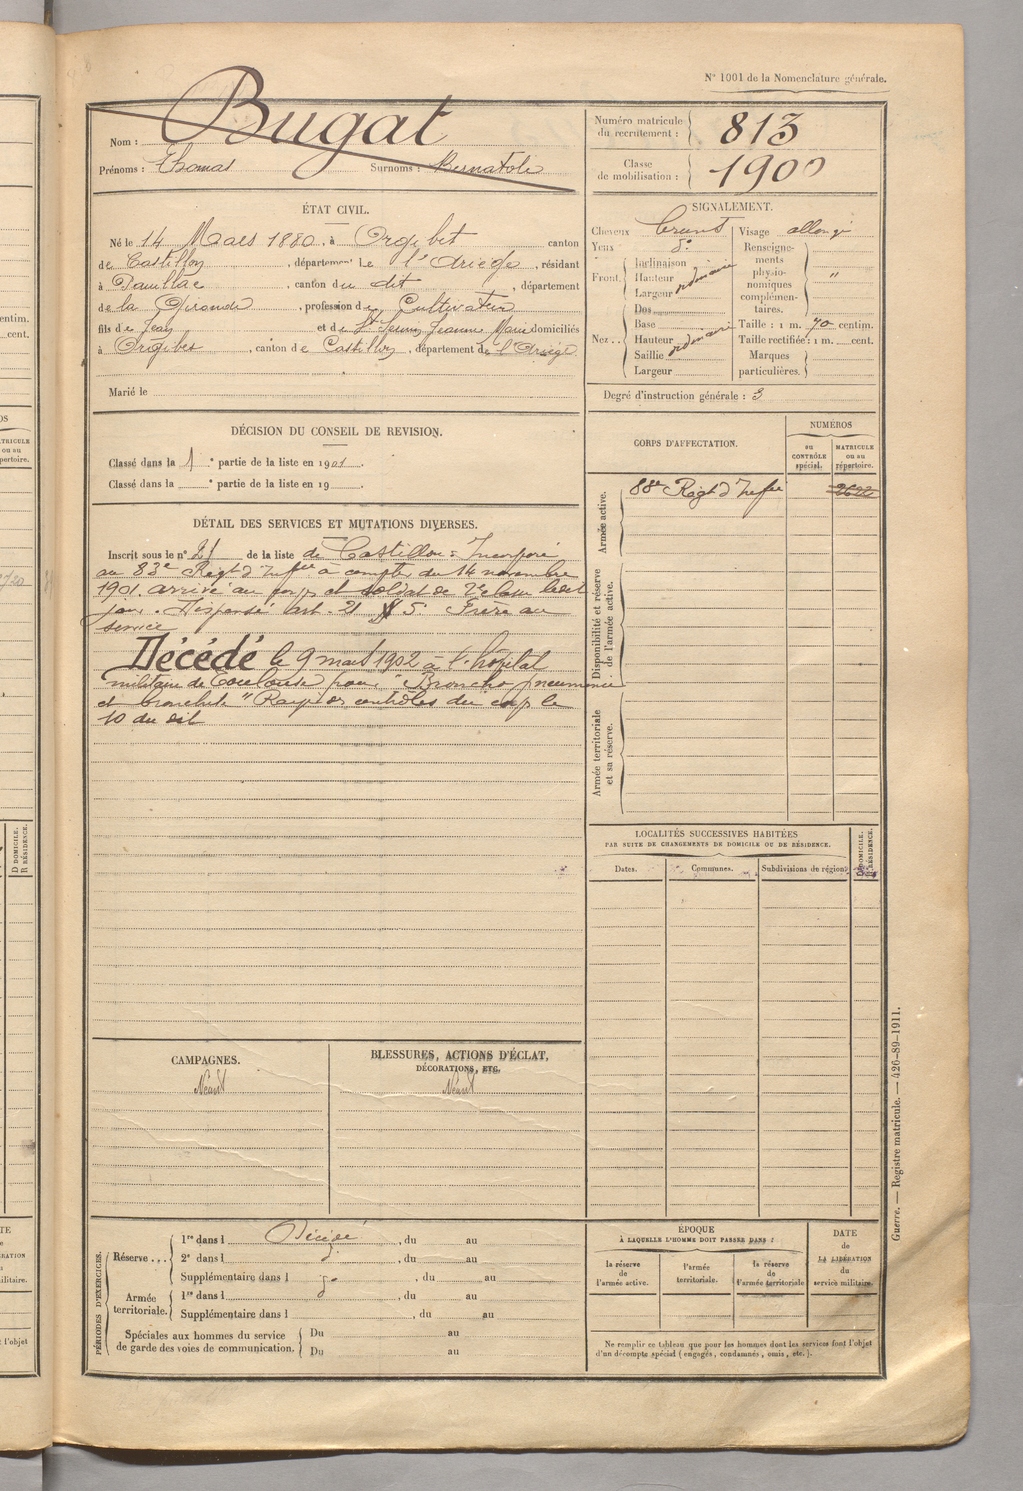 N° 1001 de la Nomenclature générale.
Nom : Bugat
Prénoms : Thomas Surnoms : Bernatole
Numéro matricule du recrutement : 813
Classe de mobilisation : 1900
ÉTAT CIVIL.
Né le 14 Mars 1880, à Orgibet canton
de Castillon, département de l'Ariège, résidant
à Pauillac, canton du dit, département
de la Gironde, profession de Cultivateur
fils de Jean et de Jeanne Marie domiciliés
à Orgibet, canton de Castillon, département de l'Ariège
Marié le
SIGNALEMENT.
Cheveux bruns
Yeux d°
Front. Inclinaison
Hauteur ordinaire
Largeur
Nez.. Dos
Base
Hauteur ordinaire
Saillie
Largeur
Visage allongé
Renseignements physionomiques complémentaires. "
Taille : 1 m. 70 centim.
Taille rectifiée : 1 m. cent.
Marques particulières.
Degré d'instruction générale : 3
DÉCISION DU CONSEIL DE REVISION.
Classé dans la 1e partie de la liste en 1901.
Classé dans la e partie de la liste en 19 .
CORPS D'AFFECTATION.
NUMÉROS
au CONTRÔLE spécial.
MATRICULE ou au répertoire.
Armée active.
88e Régt d'Inf[ie]
Disponibilité et réserve de l'armée active.
Armée territoriale et sa réserve.
DÉTAIL DES SERVICES ET MUTATIONS DIVERSES.
Inscrit sous le n° 21 de la liste de Castillon = Incorporé
au 83e Régt d'Infie à compter du 14 novembre
1901, arrivé au corps et soldat de 2e classe ledit
jour. Dispensé art. 21 § 5. Frère au
service
Décédé le 9 mars 1902 à l'hôpital
militaire de Toulouse pour "Broncho pneumonie
et bronchite" Rayé des contrôles du corps le
10 du dit
LOCALITÉS SUCCESSIVES HABITÉES
PAR SUITE DE CHANGEMENTS DE DOMICILE OU DE RÉSIDENCE.
Dates. Communes. Subdivisions de région. D DOMICILE. R RÉSIDENCE.
CAMPAGNES.
Néant
BLESSURES, ACTIONS D'ÉCLAT,
DÉCORATIONS, ETC.
Néant
PÉRIODES D'EXERCICES.
Réserve... 1re dans l Décédé, du au
2e dans l , du au
Supplémentaire dans l , du au
Armée territoriale. 1re dans l , du au
Supplémentaire dans l , du au
Spéciales aux hommes du service de garde des voies de communication. Du au
Du au
ÉPOQUE
À LAQUELLE L'HOMME DOIT PASSER DANS :
la réserve de l'armée active.
l'armée territoriale.
la réserve de l'armée territoriale
DATE de LA LIBÉRATION du service militaire.
Ne remplir ce tableau que pour les hommes dont les services font l'objet
d'un décompte spécial (engagés, condamnés, omis, etc.).
Guerre. — Registre matricule. — 426-89-1911.